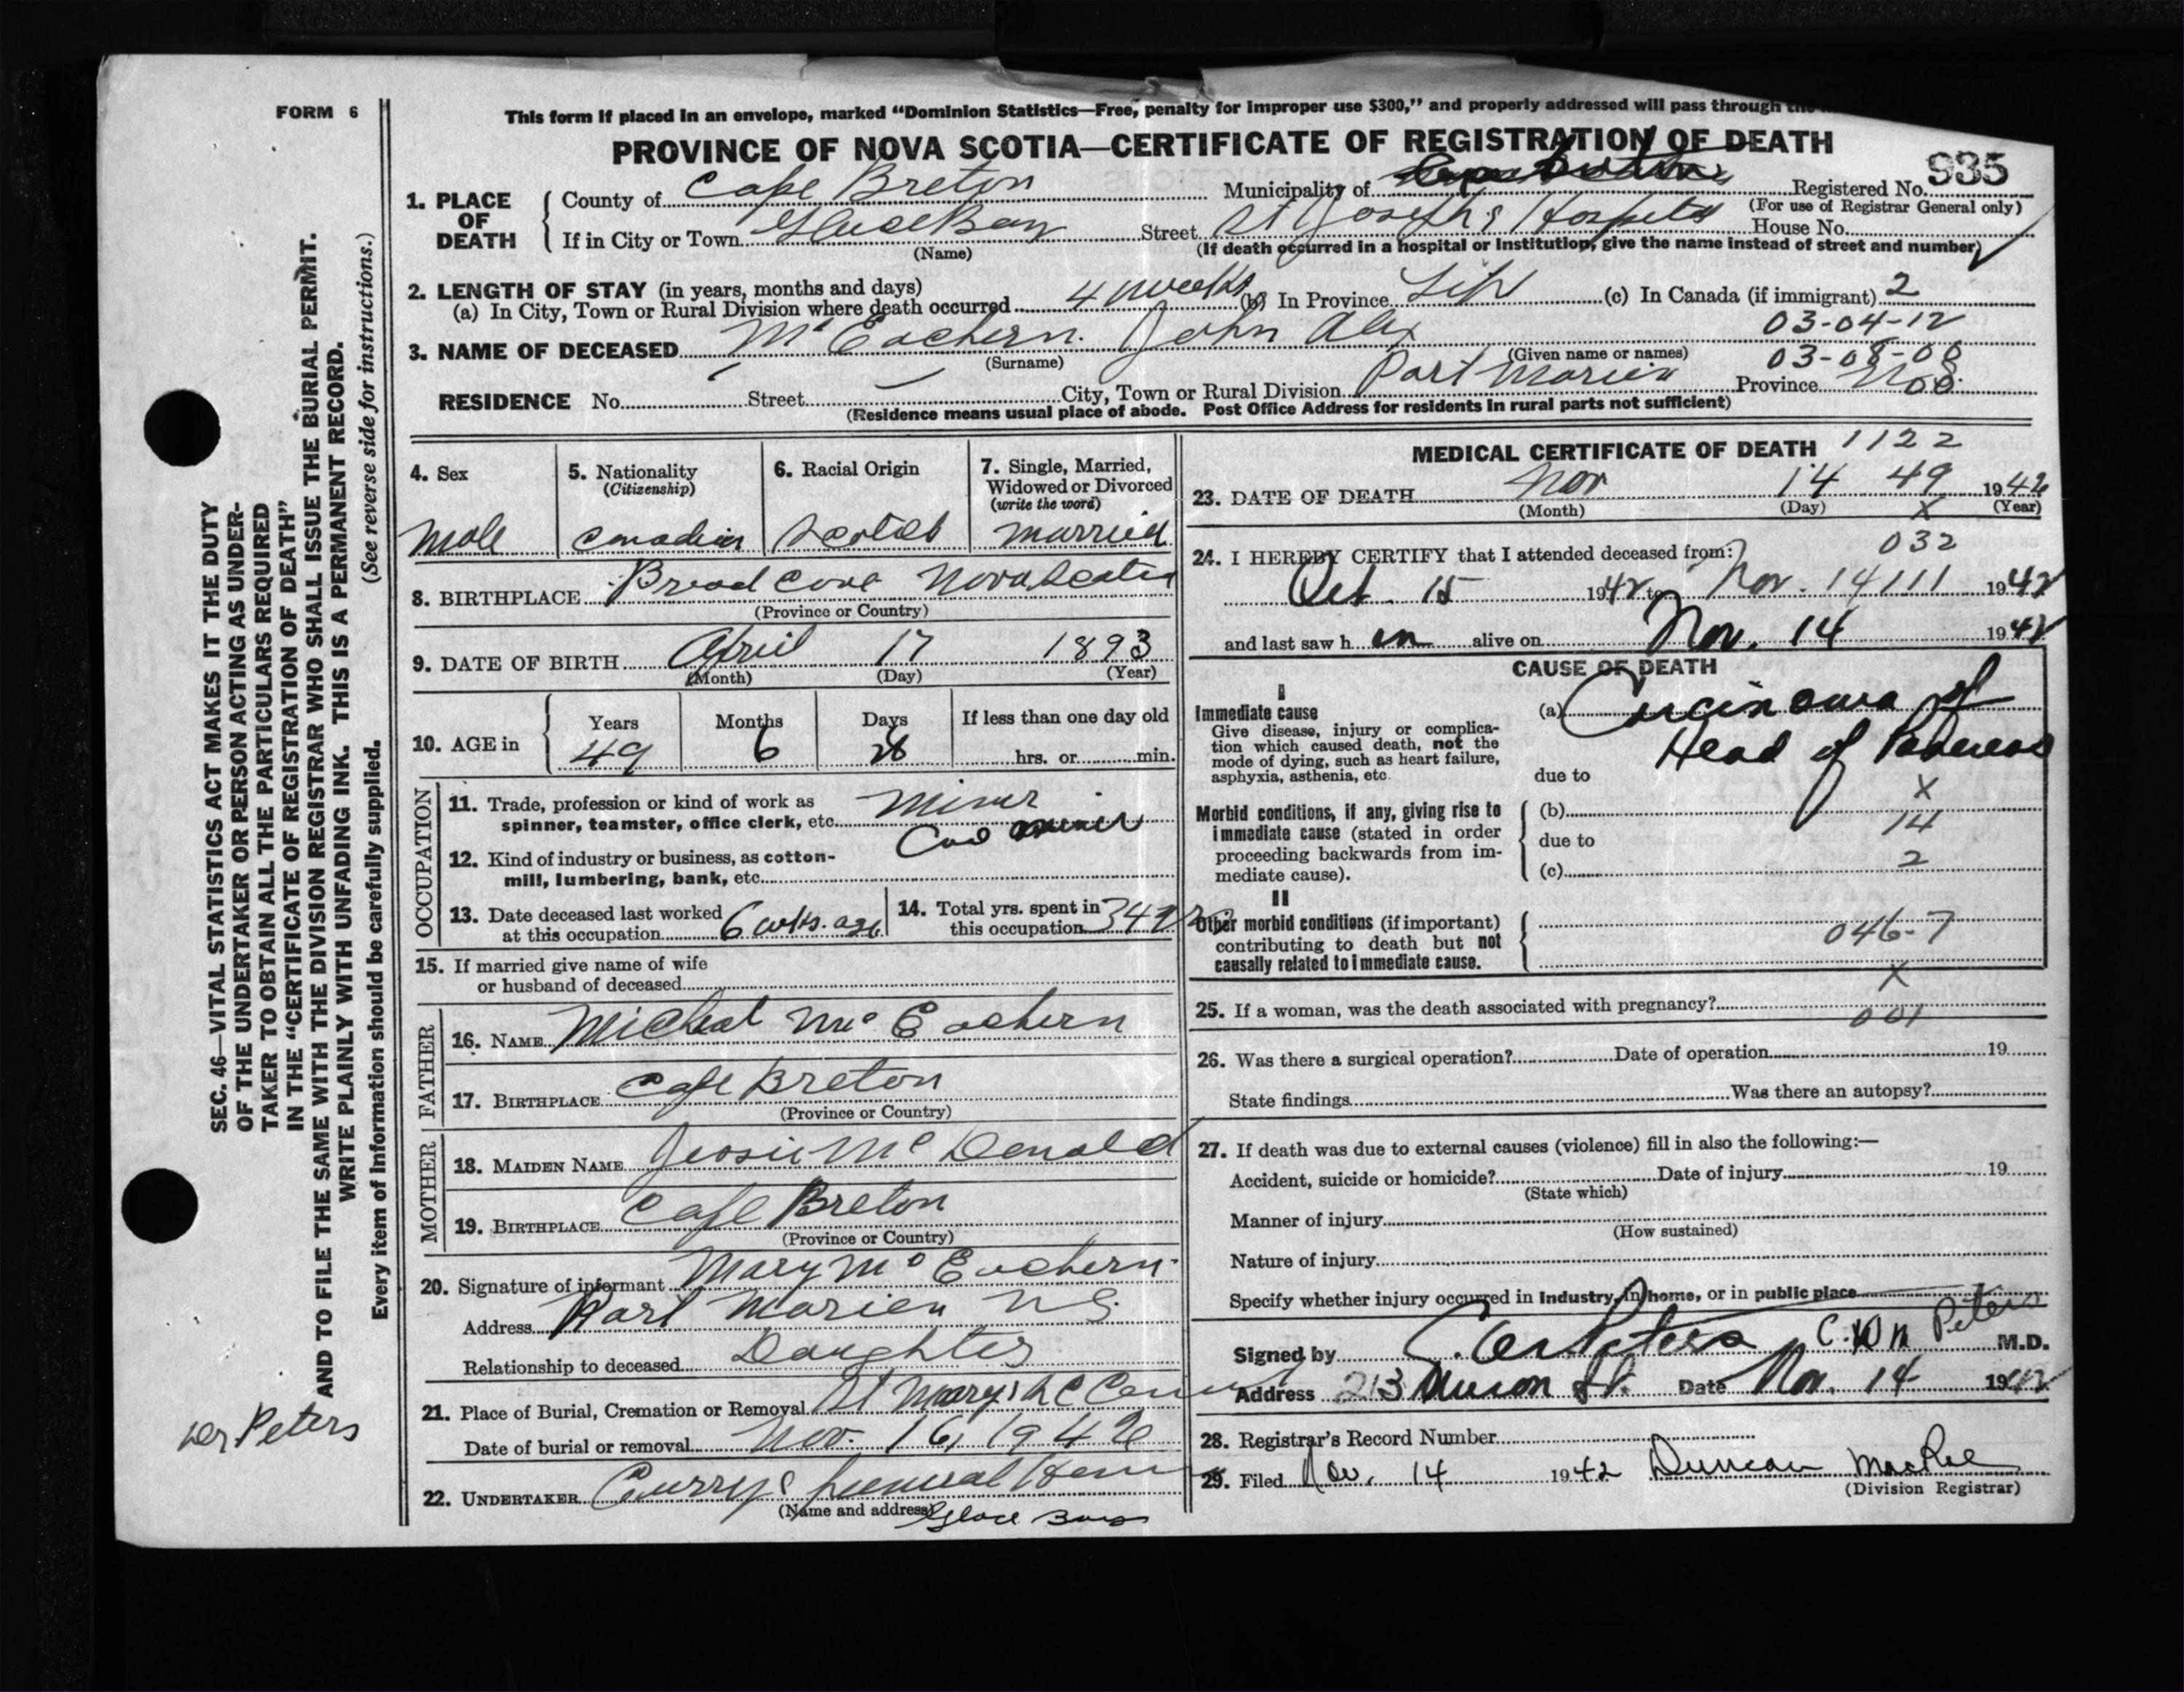 FORM 6
This form if placed in an envelope, marked “Dominion Statistics—Free, penalty for improper use $300,” and properly addressed will pass through
PROVINCE OF NOVA SCOTIA—CERTIFICATE OF REGISTRATION OF DEATH
1. PLACE OF DEATH
County of Cape Breton
Municipality of
Registered No. 935
(For use of Registrar General only)
If in City or Town Glace Bay
(Name)
Street St Joseph's Hospital
House No.
(If death occurred in a hospital or institution, give the name instead of street and number)
2. LENGTH OF STAY (in years, months and days)
(a) In City, Town or Rural Division where death occurred 4 weeks (b) In Province Life (c) In Canada (if immigrant) 2
03-04-12
3. NAME OF DECEASED McEachern. John Alex
(Surname) (Given name or names) 03-08-08
RESIDENCE No. Street City, Town or Rural Division Port Morien Province N.S.
(Residence means usual place of abode. Post Office Address for residents in rural parts not sufficient)
4. Sex
Male
5. Nationality
(Citizenship)
Canadian
6. Racial Origin
Scotch
7. Single, Married, Widowed or Divorced
(write the word)
married
8. BIRTHPLACE Broad Cove Nova Scotia
(Province or Country)
9. DATE OF BIRTH April 17 1893
(Month) (Day) (Year)
10. AGE in
Years Months Days If less than one day old
49 6 28 hrs. or min.
OCCUPATION
11. Trade, profession or kind of work as spinner, teamster, office clerk, etc. Miner
Coal miner
12. Kind of industry or business, as cotton-mill, lumbering, bank, etc.
13. Date deceased last worked at this occupation 6 wks. ago
14. Total yrs. spent in this occupation 34 yrs
15. If married give name of wife
or husband of deceased
FATHER
16. NAME Micheal McEachern
17. BIRTHPLACE Cape Breton
(Province or Country)
MOTHER
18. MAIDEN NAME Jessie McDonald
19. BIRTHPLACE Cape Breton
(Province or Country)
20. Signature of informant Mary McEachern
Address Port Morien N S.
Relationship to deceased Daughter
21. Place of Burial, Cremation or Removal St Mary's R C Cem
Date of burial or removal Nov. 16, 1942
22. UNDERTAKER Curry's Funeral Home
(Name and address) Glace Bay
MEDICAL CERTIFICATE OF DEATH 1122
23. DATE OF DEATH Nov 14 49 1942
(Month) (Day) X (Year)
24. I HEREBY CERTIFY that I attended deceased from: 032
Oct. 15 1942 to Nov. 14 111 1942
and last saw h im alive on Nov. 14 1942
CAUSE OF DEATH
I
Immediate cause
Give disease, injury or complication which caused death, not the mode of dying, such as heart failure, asphyxia, asthenia, etc.
(a) Carcinoma of
Head of Pancreas
due to
X
Morbid conditions, if any, giving rise to immediate cause (stated in order proceeding backwards from immediate cause).
(b)
14
due to
2
(c)
II
Other morbid conditions (if important) contributing to death but not causally related to immediate cause.
046-7
X
25. If a woman, was the death associated with pregnancy?
001
26. Was there a surgical operation? Date of operation 19
State findings Was there an autopsy?
27. If death was due to external causes (violence) fill in also the following:—
Accident, suicide or homicide? Date of injury 19
(State which)
Manner of injury
(How sustained)
Nature of injury
Specify whether injury occurred in industry, in home, or in public place
Signed by Peters Peters M.D.
Address 213 Union St. Date Nov. 14 1942
28. Registrar's Record Number
29. Filed Nov. 14 1942 Duncan MacRae
(Division Registrar)
SEC. 46—VITAL STATISTICS ACT MAKES IT THE DUTY
OF THE UNDERTAKER OR PERSON ACTING AS UNDER-
TAKER TO OBTAIN ALL THE PARTICULARS REQUIRED
IN THE “CERTIFICATE OF REGISTRATION OF DEATH”
AND TO FILE THE SAME WITH THE DIVISION REGISTRAR WHO SHALL ISSUE THE BURIAL PERMIT.
WRITE PLAINLY WITH UNFADING INK. THIS IS A PERMANENT RECORD.
(See reverse side for instructions.)
Every item of information should be carefully supplied.
Peters